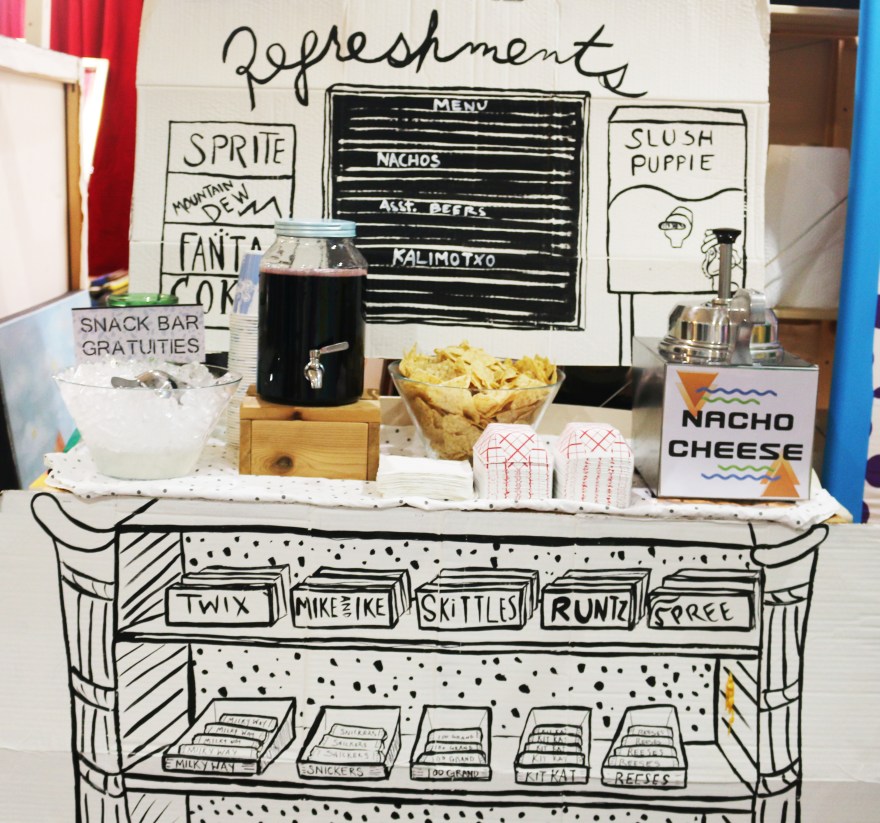 Refreshments
MENU
NACHOS
ASST. BEERS
KALIMOTXO
SPRITE
MOUNTAIN
DEW
FANTA
COK
SLUSH
PUPPIE
SNACK BAR
GRATUITIES
NACHO
CHEESE
TWIX
MIKE AND IKE
SKiTTLES
RUNTZ
SPREE
MILKY WAY
MILKY WAY
MILKY WAY
MILKY WAY
MILKY WAY
SNICKERS
SNICKERS
SNICKERS
SNICKERS
100 GRAND
100 GRAND
100 GRAND
100 GRAND
KIT KAT
KIT KAT
KIT KAT
KIT KAT
KIT KAT
REESES
REESES
REESES
REESES
REESES